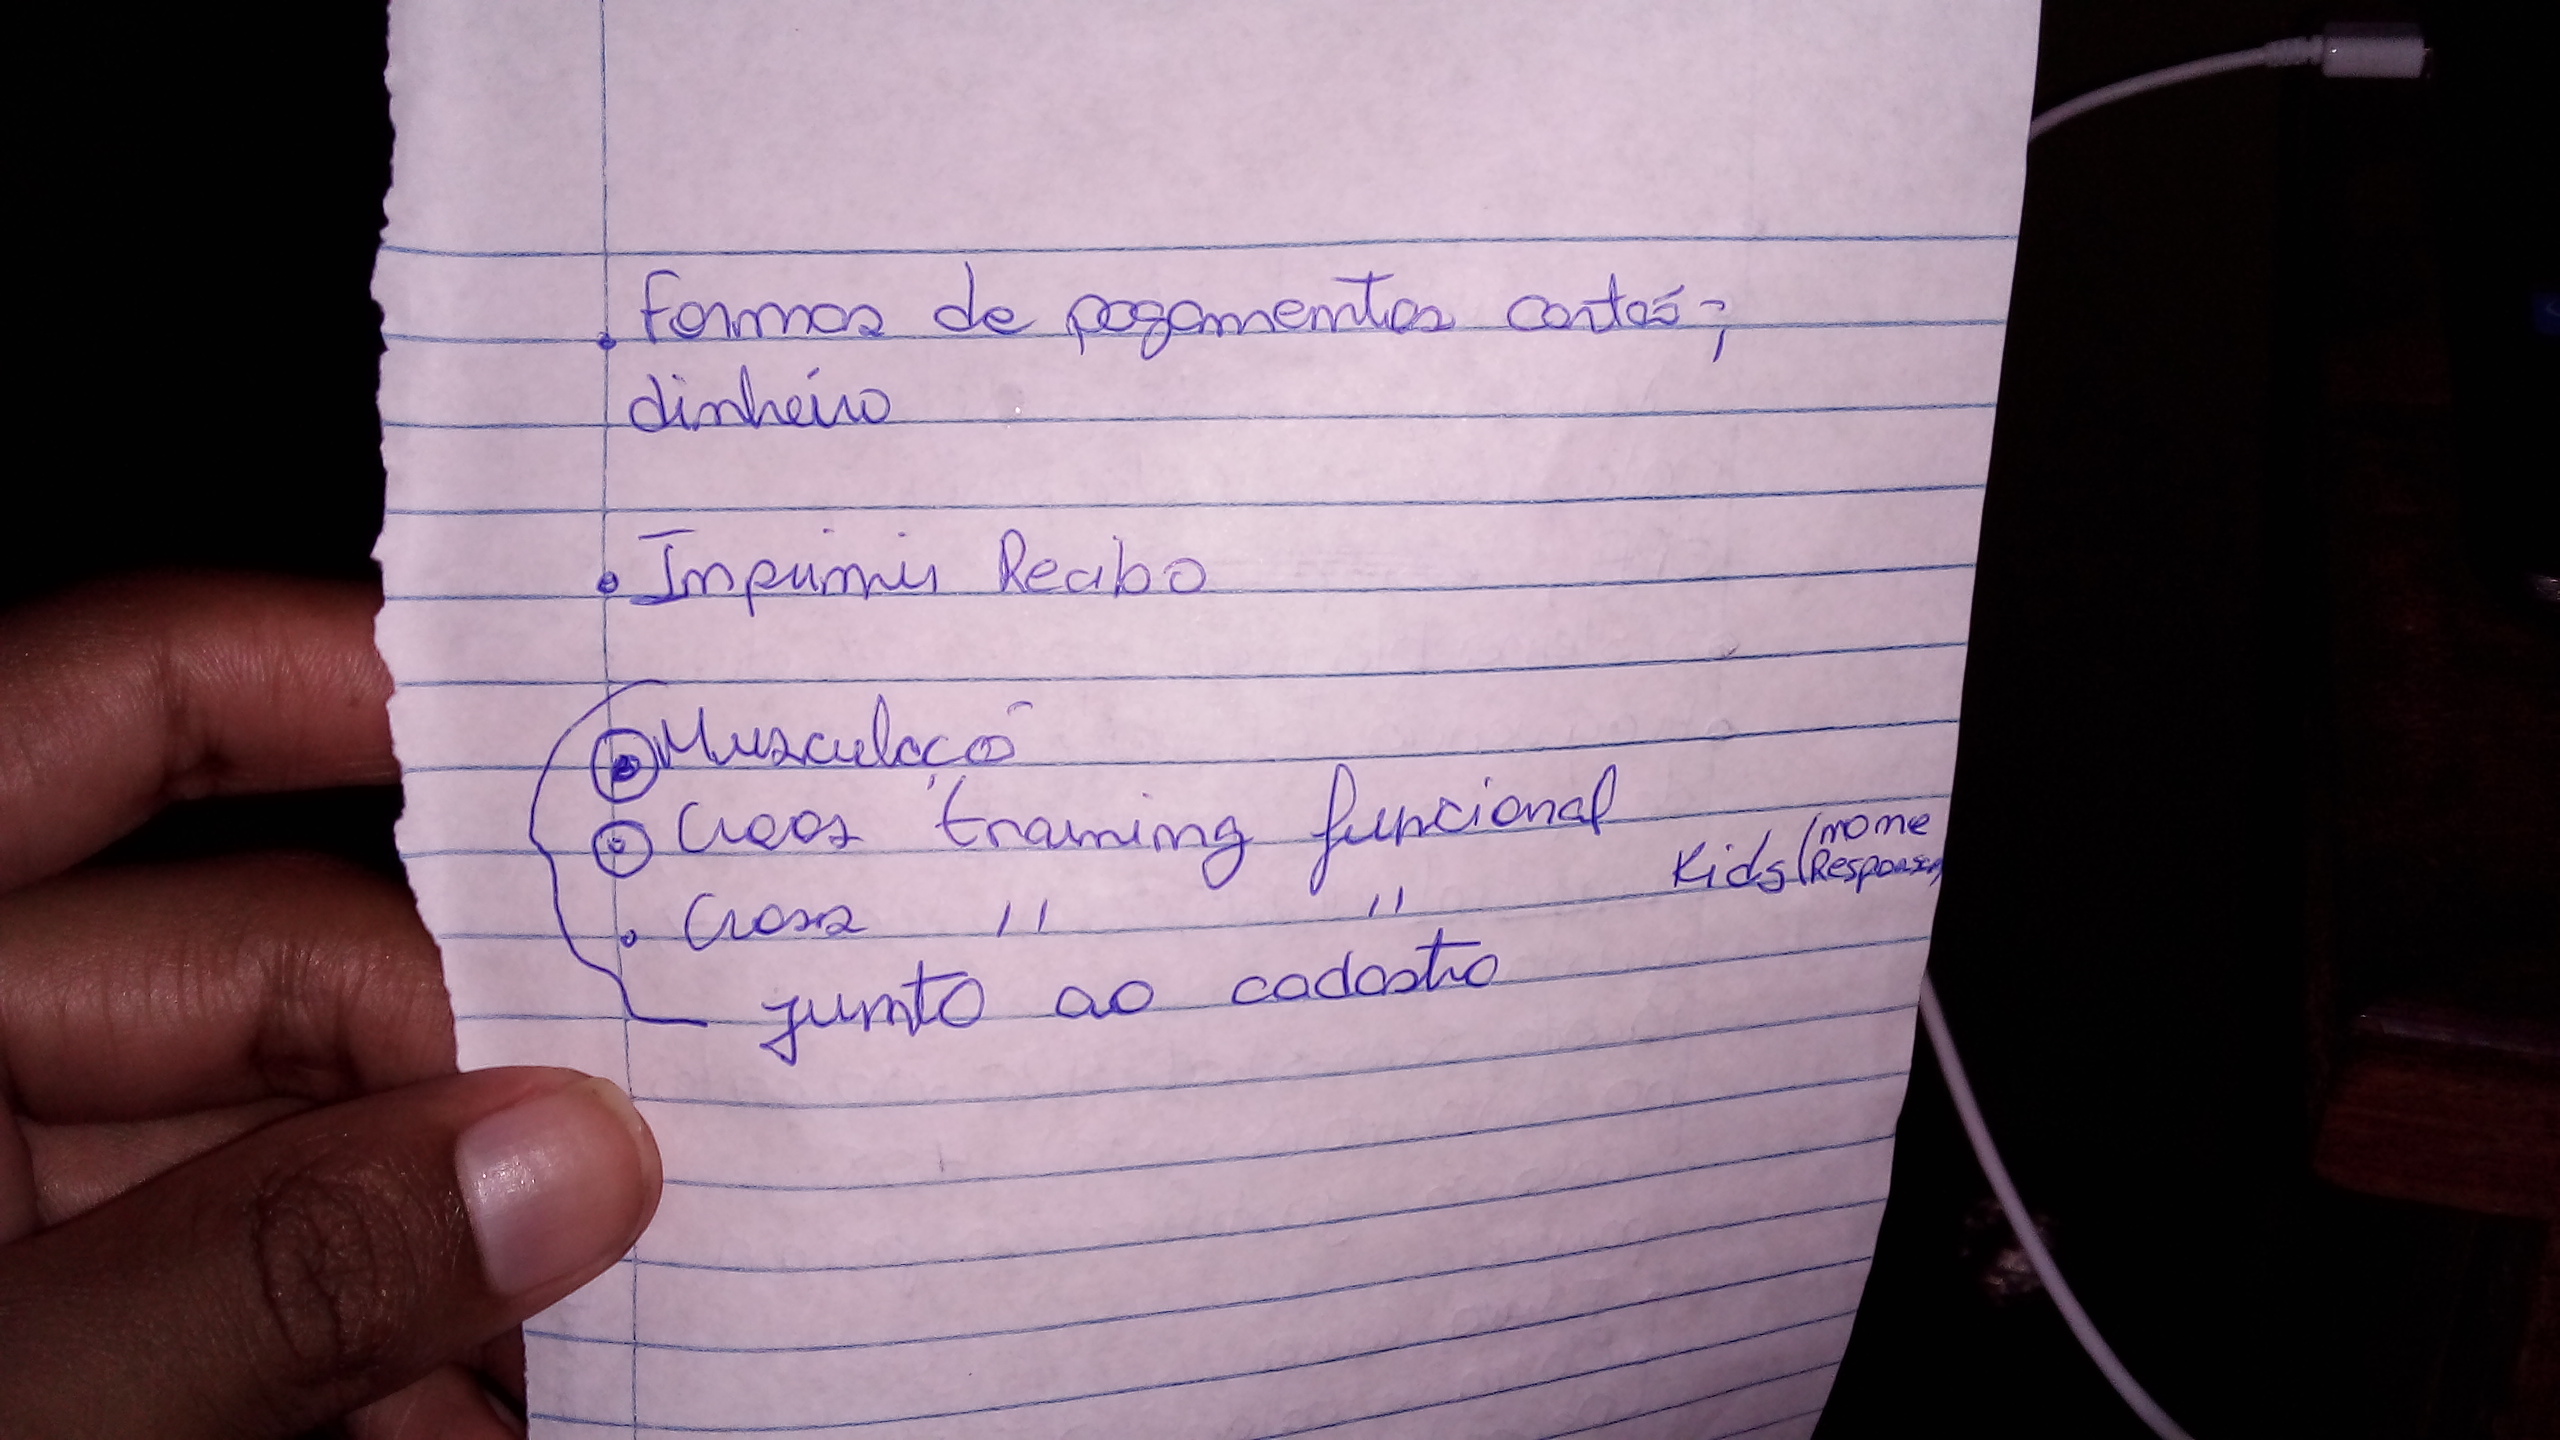 • Formas de pagamentos cartão,
dinheiro
• Imprimir Recibo
• Musculação
• Cross training funcional
• Cross " " Kids (nome
Respons,
junto ao cadastro